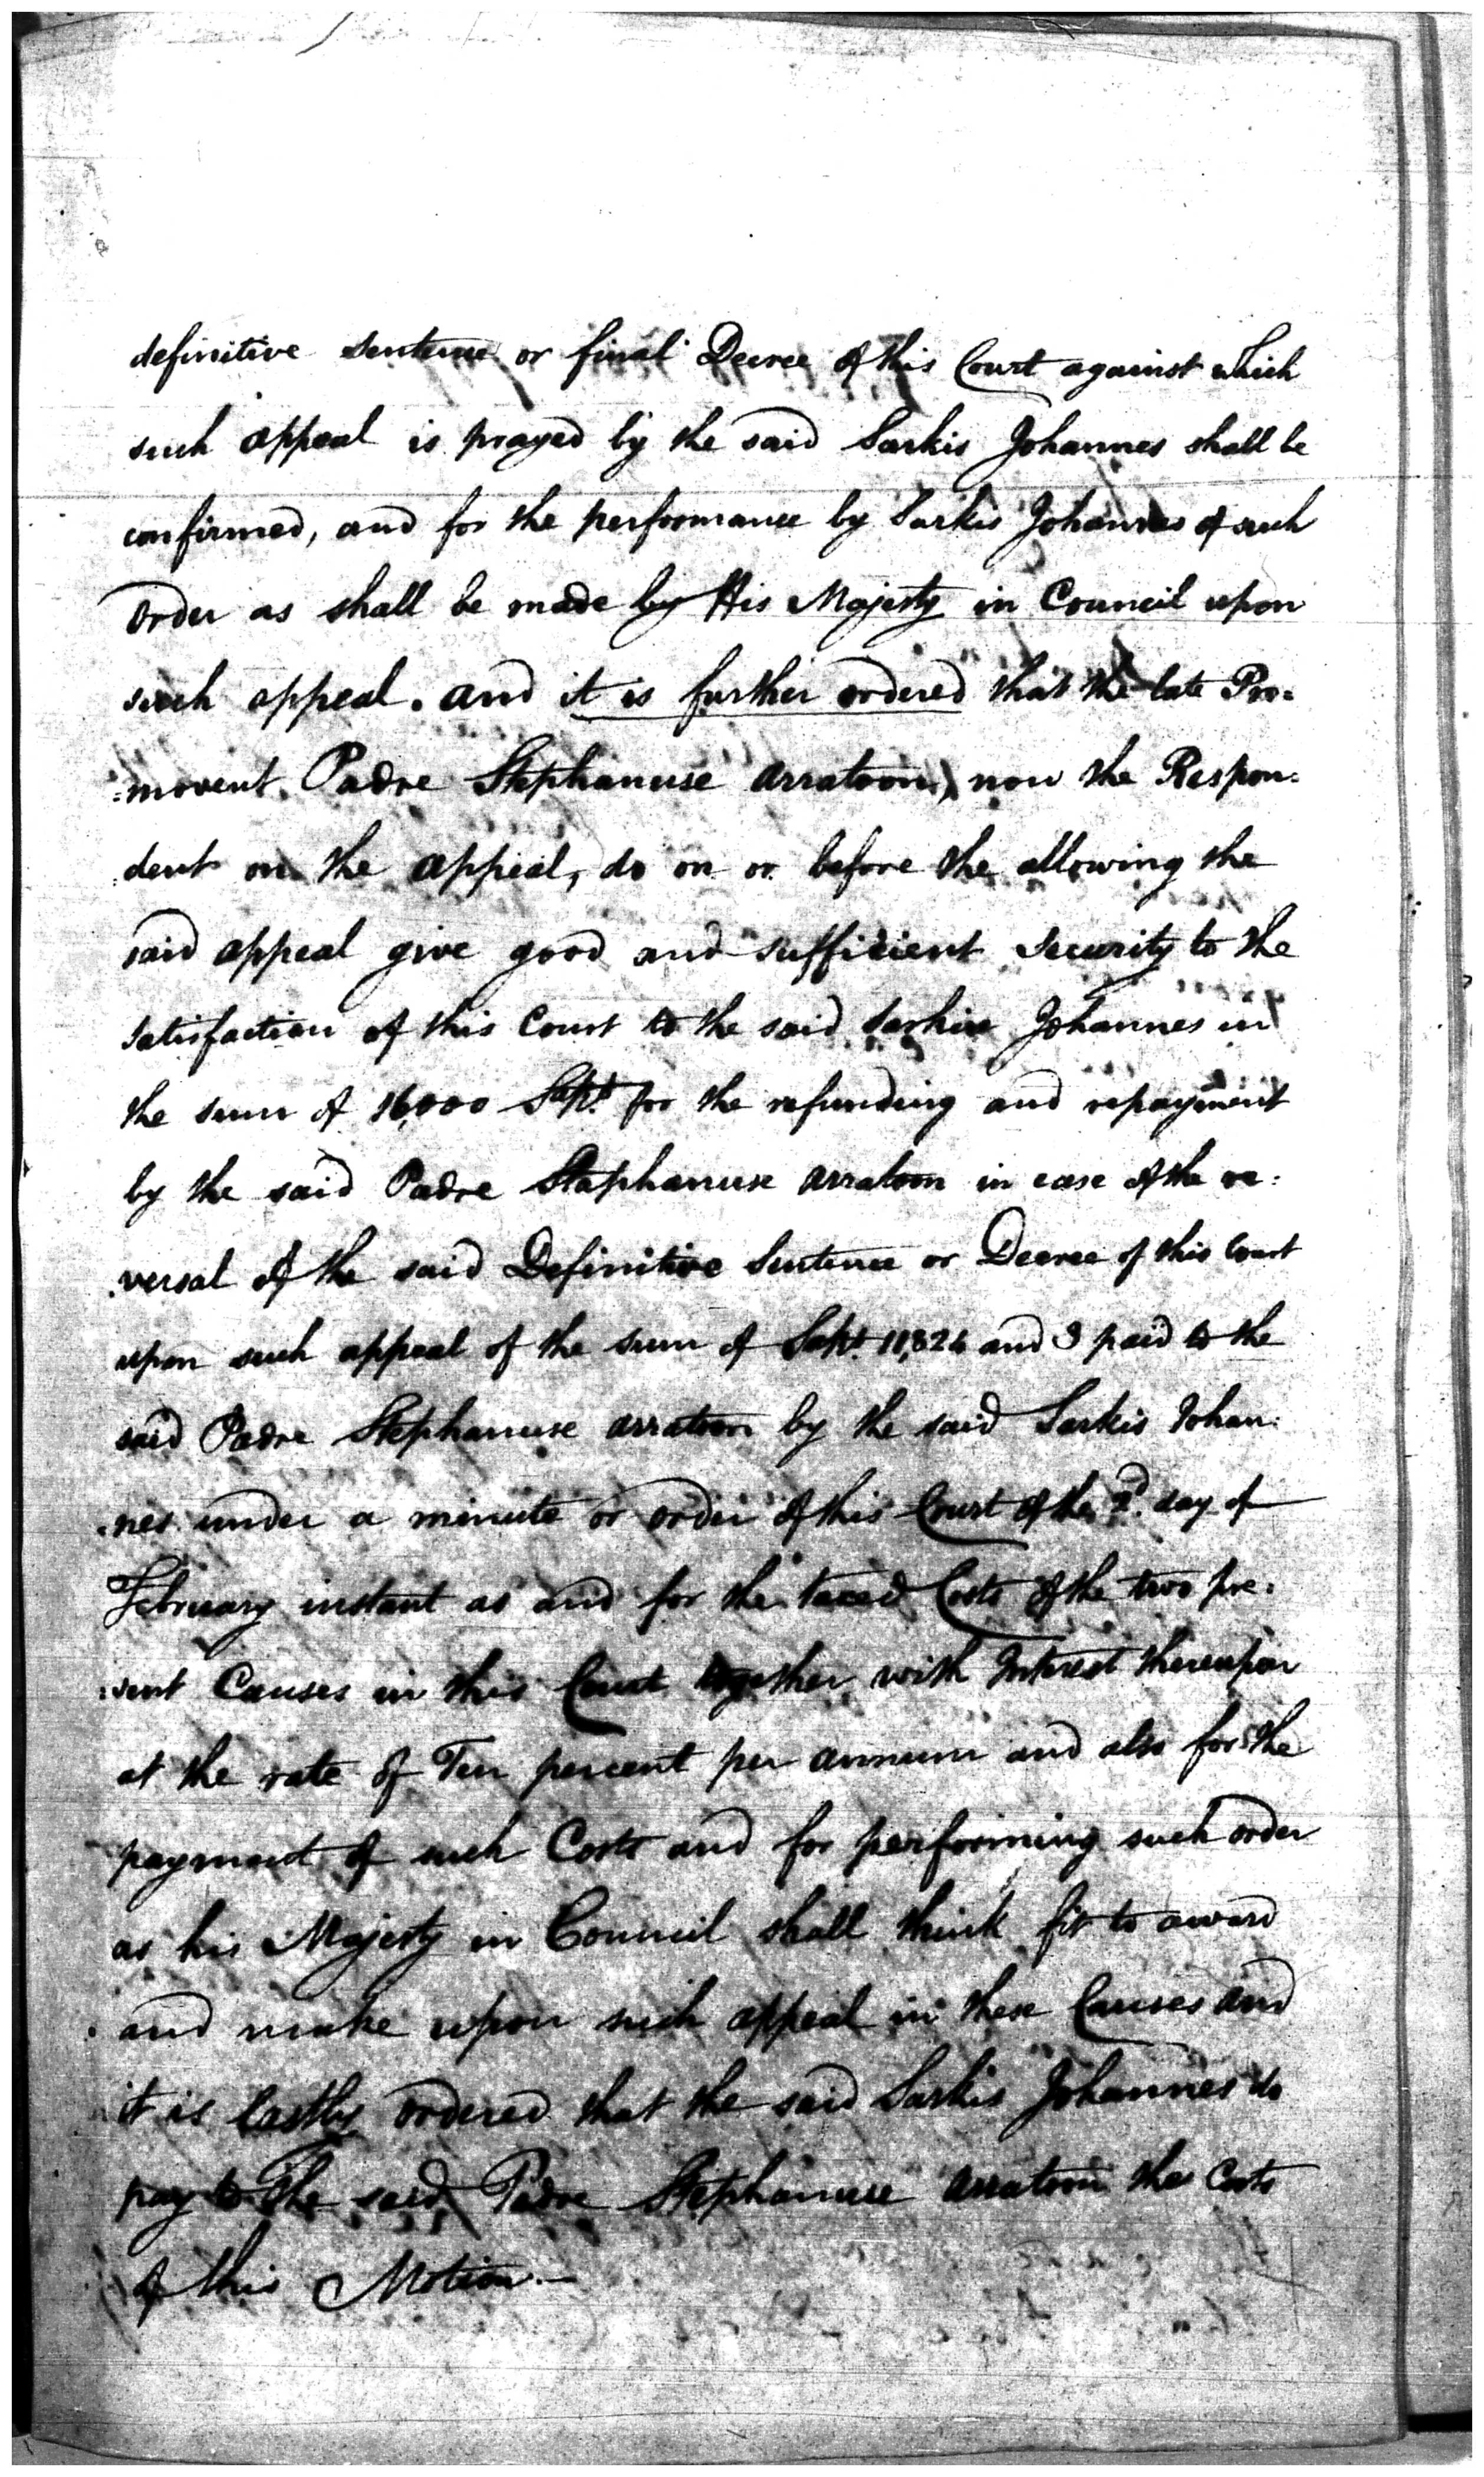 definitive sentence or final Decree of this Court against which
such appeal is prayed by the said Sarkis Johannes shall be
confirmed, and for the performance by Sarkis Johannes of such
order as shall be made by His Majesty in Council upon
such appeal. and it is further ordered that the late Pro=
=movent Padre Stephanuse arratoon, now the Respon=
dent on the appeal, do on or before the allowing the
said appeal give good and sufficient security to the
satisfaction of this Court to the said Sarkis Johannes in
the sum of 16,000 for the refunding and repayment
by the said Padre Stephanuse arratoon in case of the re=
versal of the said Definitive Sentence or Decree of this Court
upon such appeal of the sum of 11,826 and 3 paid to the
said Padre Stephanuse arratoon by the said Sarkis Johan=
nes under a minute or order of this Court of the 2d. day of
February instant as and for the taxed Costs of the two pre=
=sent Causes in this Court together with Interest thereupon
at the rate of Ten percent per annum and also for the
payment of such Costs and for performing such order
as his Majesty in Council shall think fit to award
and make upon such appeal in these Causes and
it is lastly ordered that the said Sarkis Johannes do
pay to the said Padre Stephanuse arratoon the Costs
of this Motion.—